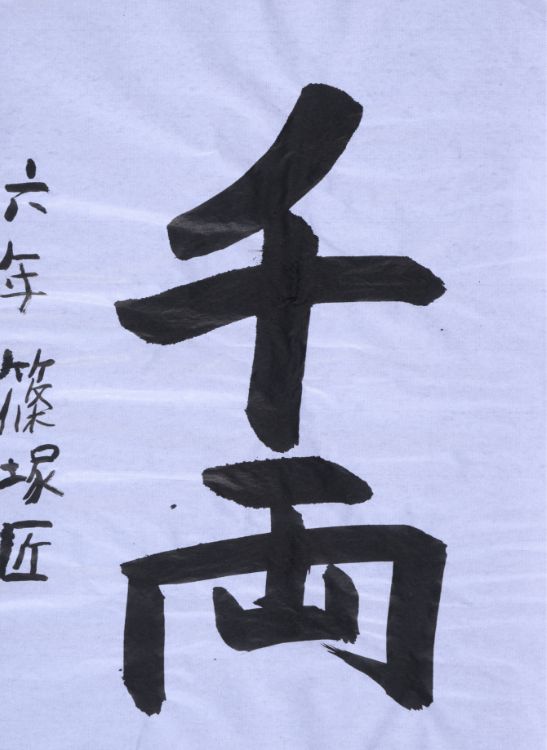 千両
六年 篠塚匠